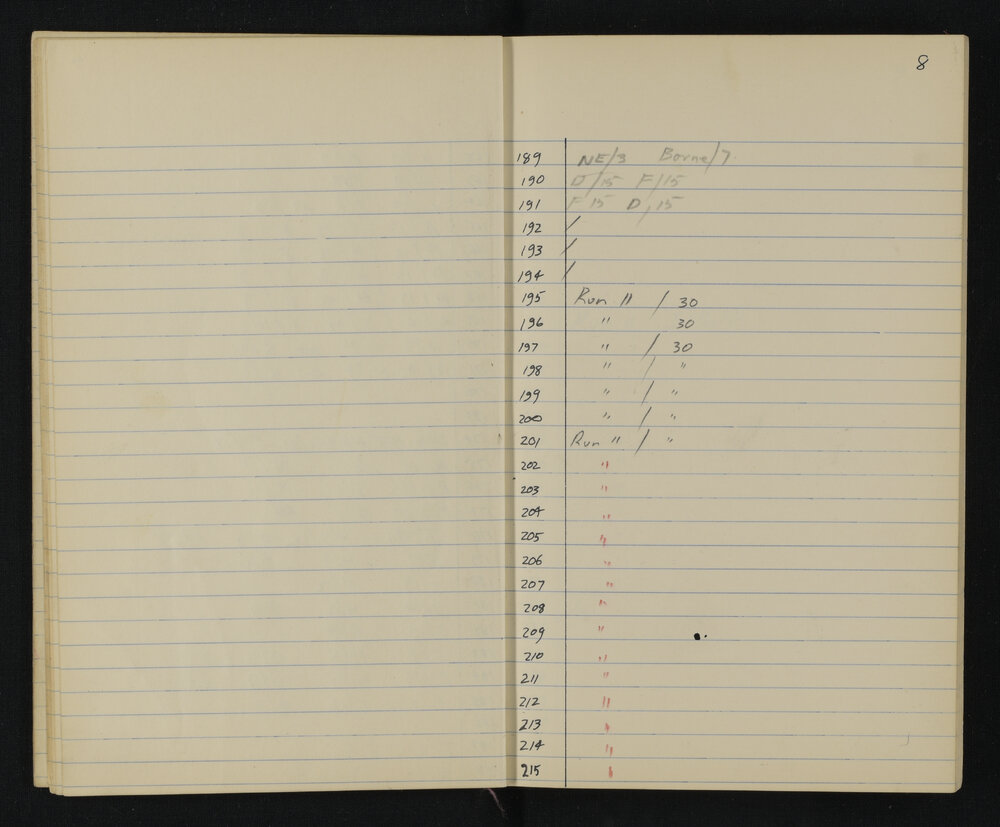 8
189 NE/3 Borne/7
190 D/15 F/15
191 F 15 D/15
192 /
193 /
194 /
195 Run 11 / 30
196 " 30
197 " / 30
198 " / "
199 " / "
200 " / "
201 Run " / "
202 "
203 "
204 "
205 "
206 "
207 "
208 "
209 "
210 "
211 "
212 "
213 "
214 "
215 "